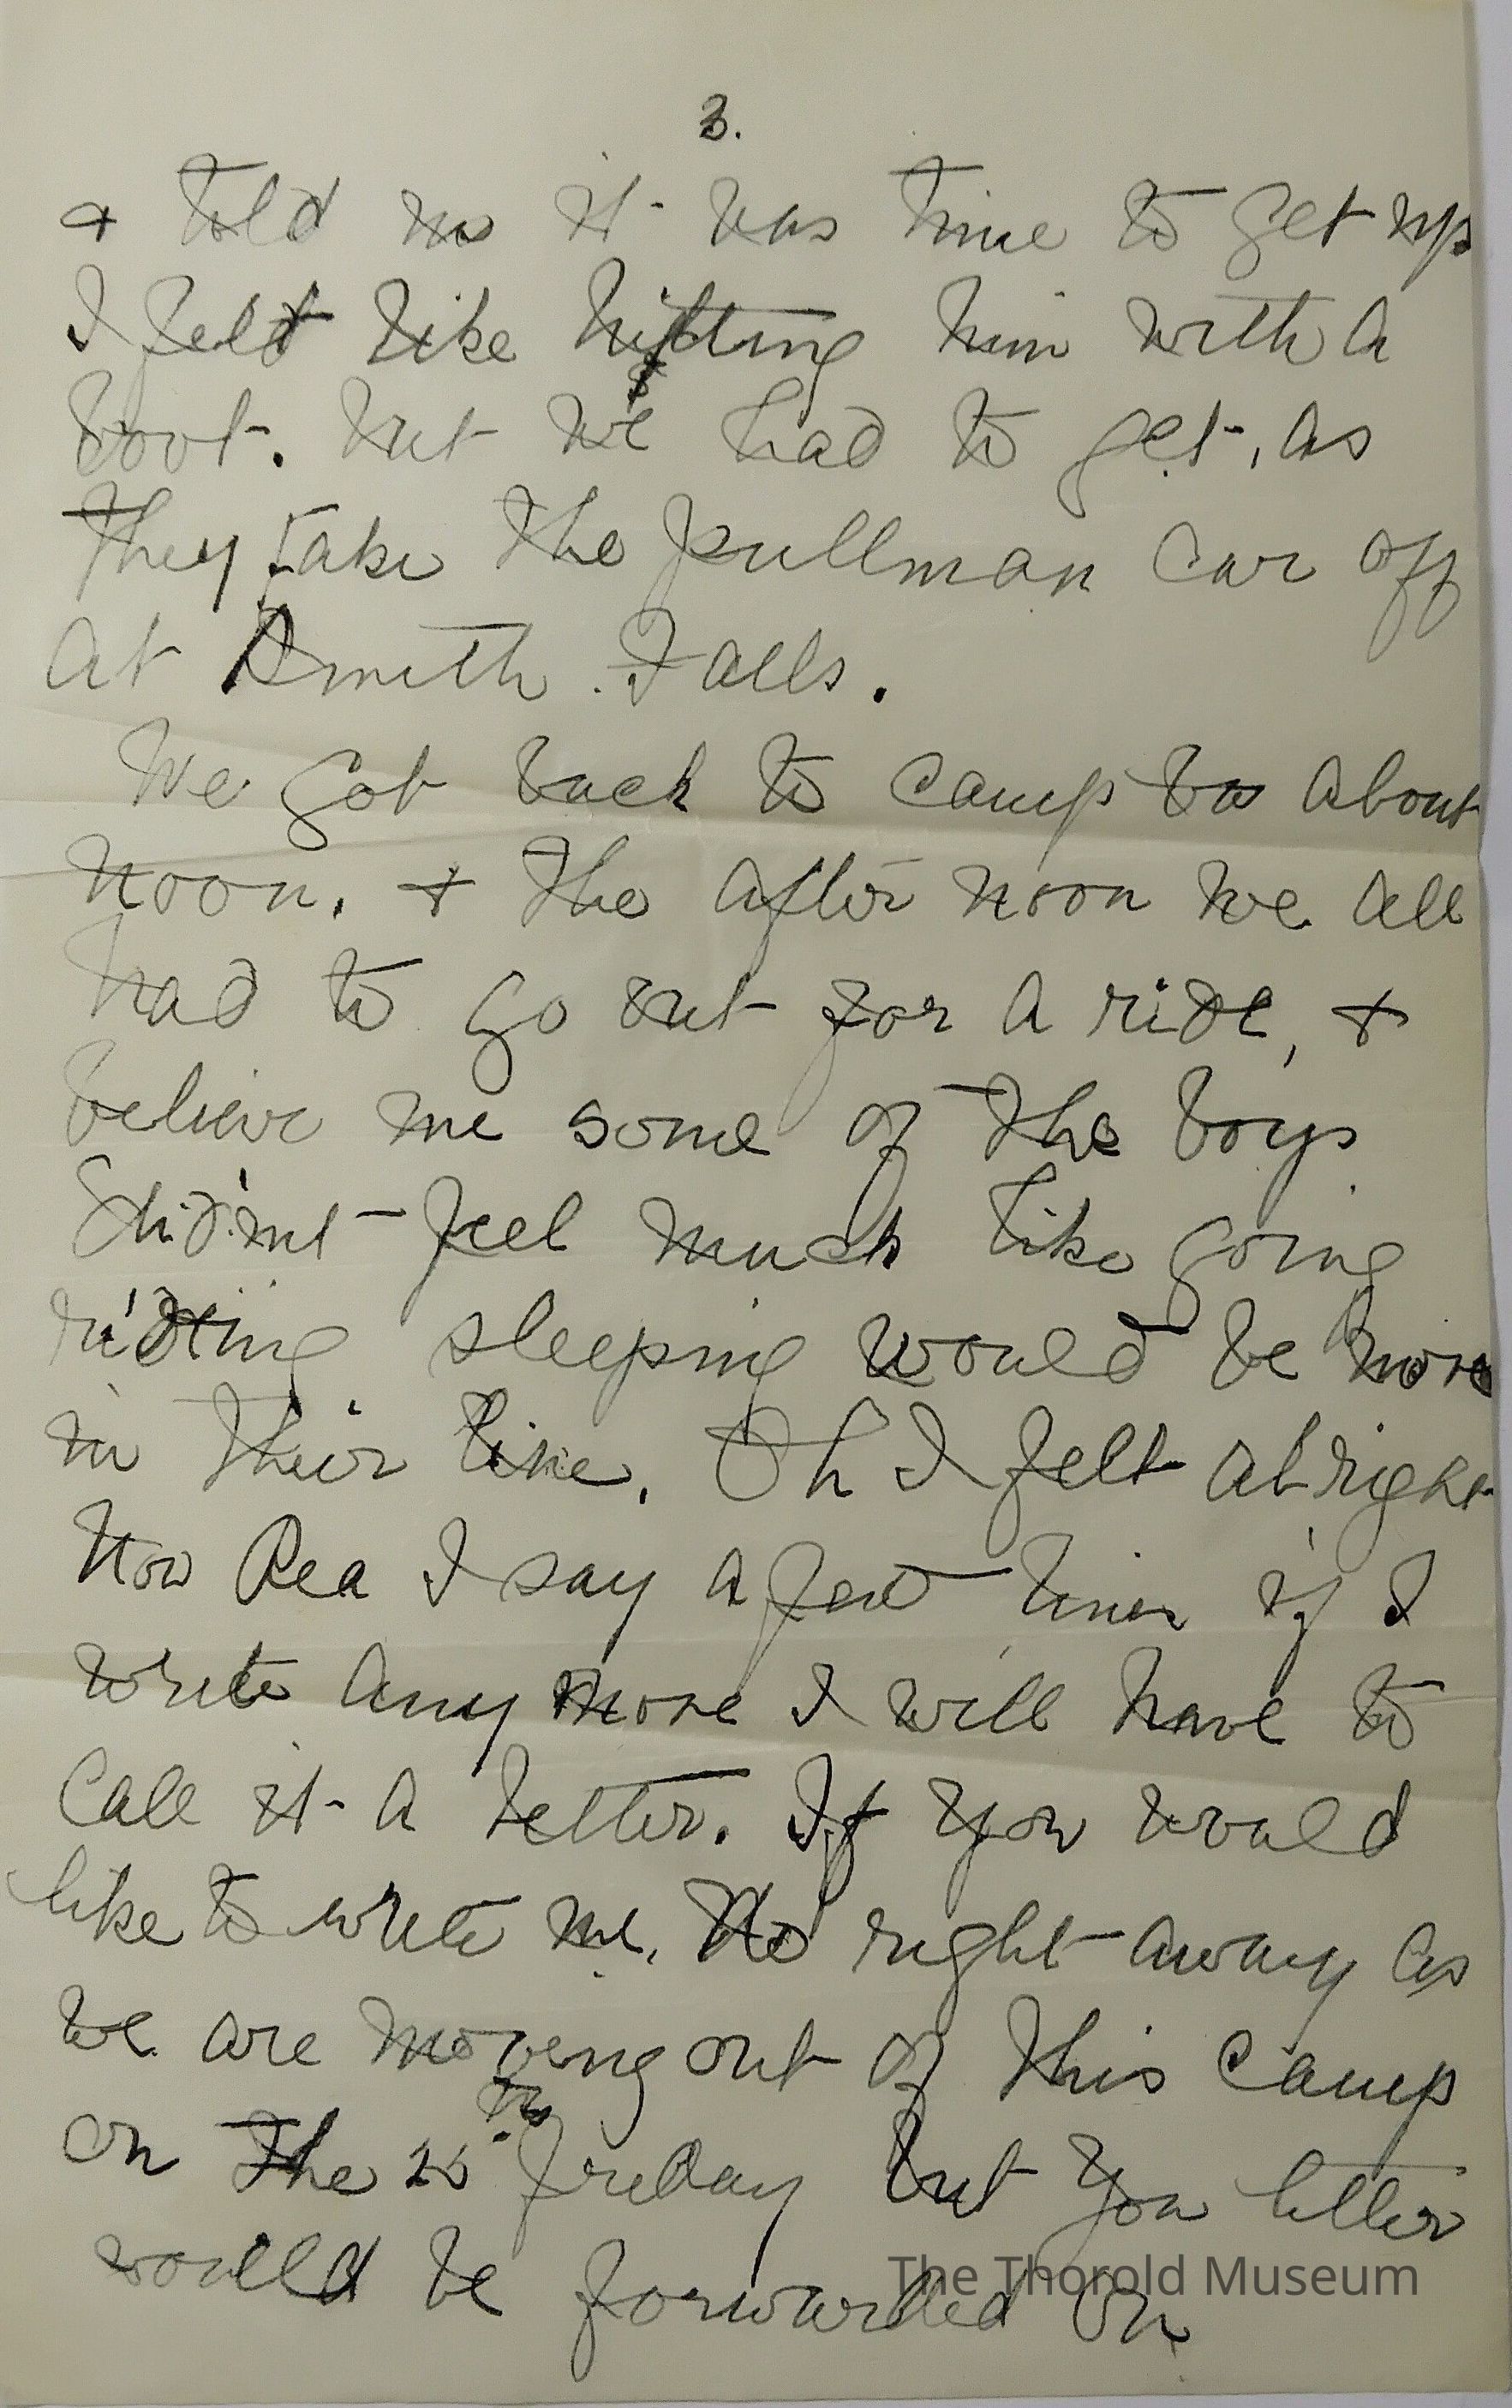 3.
+ told us it was time to get up
I felt like hitting him with a
boot. but we had to get, as
they take the pullman car off
at Smith Falls.
We got back to camp about
noon. + the after noon we all
had to go out for a ride, +
believe me some of the boys
did'nt feel much like going
riding sleeping would be more
in their line. Oh I felt alright
Now Rea I say a few lines if I
write any more I will have to
call it a letter. If you would
like to write me. do right away as
we are moveing out of this camp
on the 25th friday but you letter
would be forwarded on
The Thorold Museum